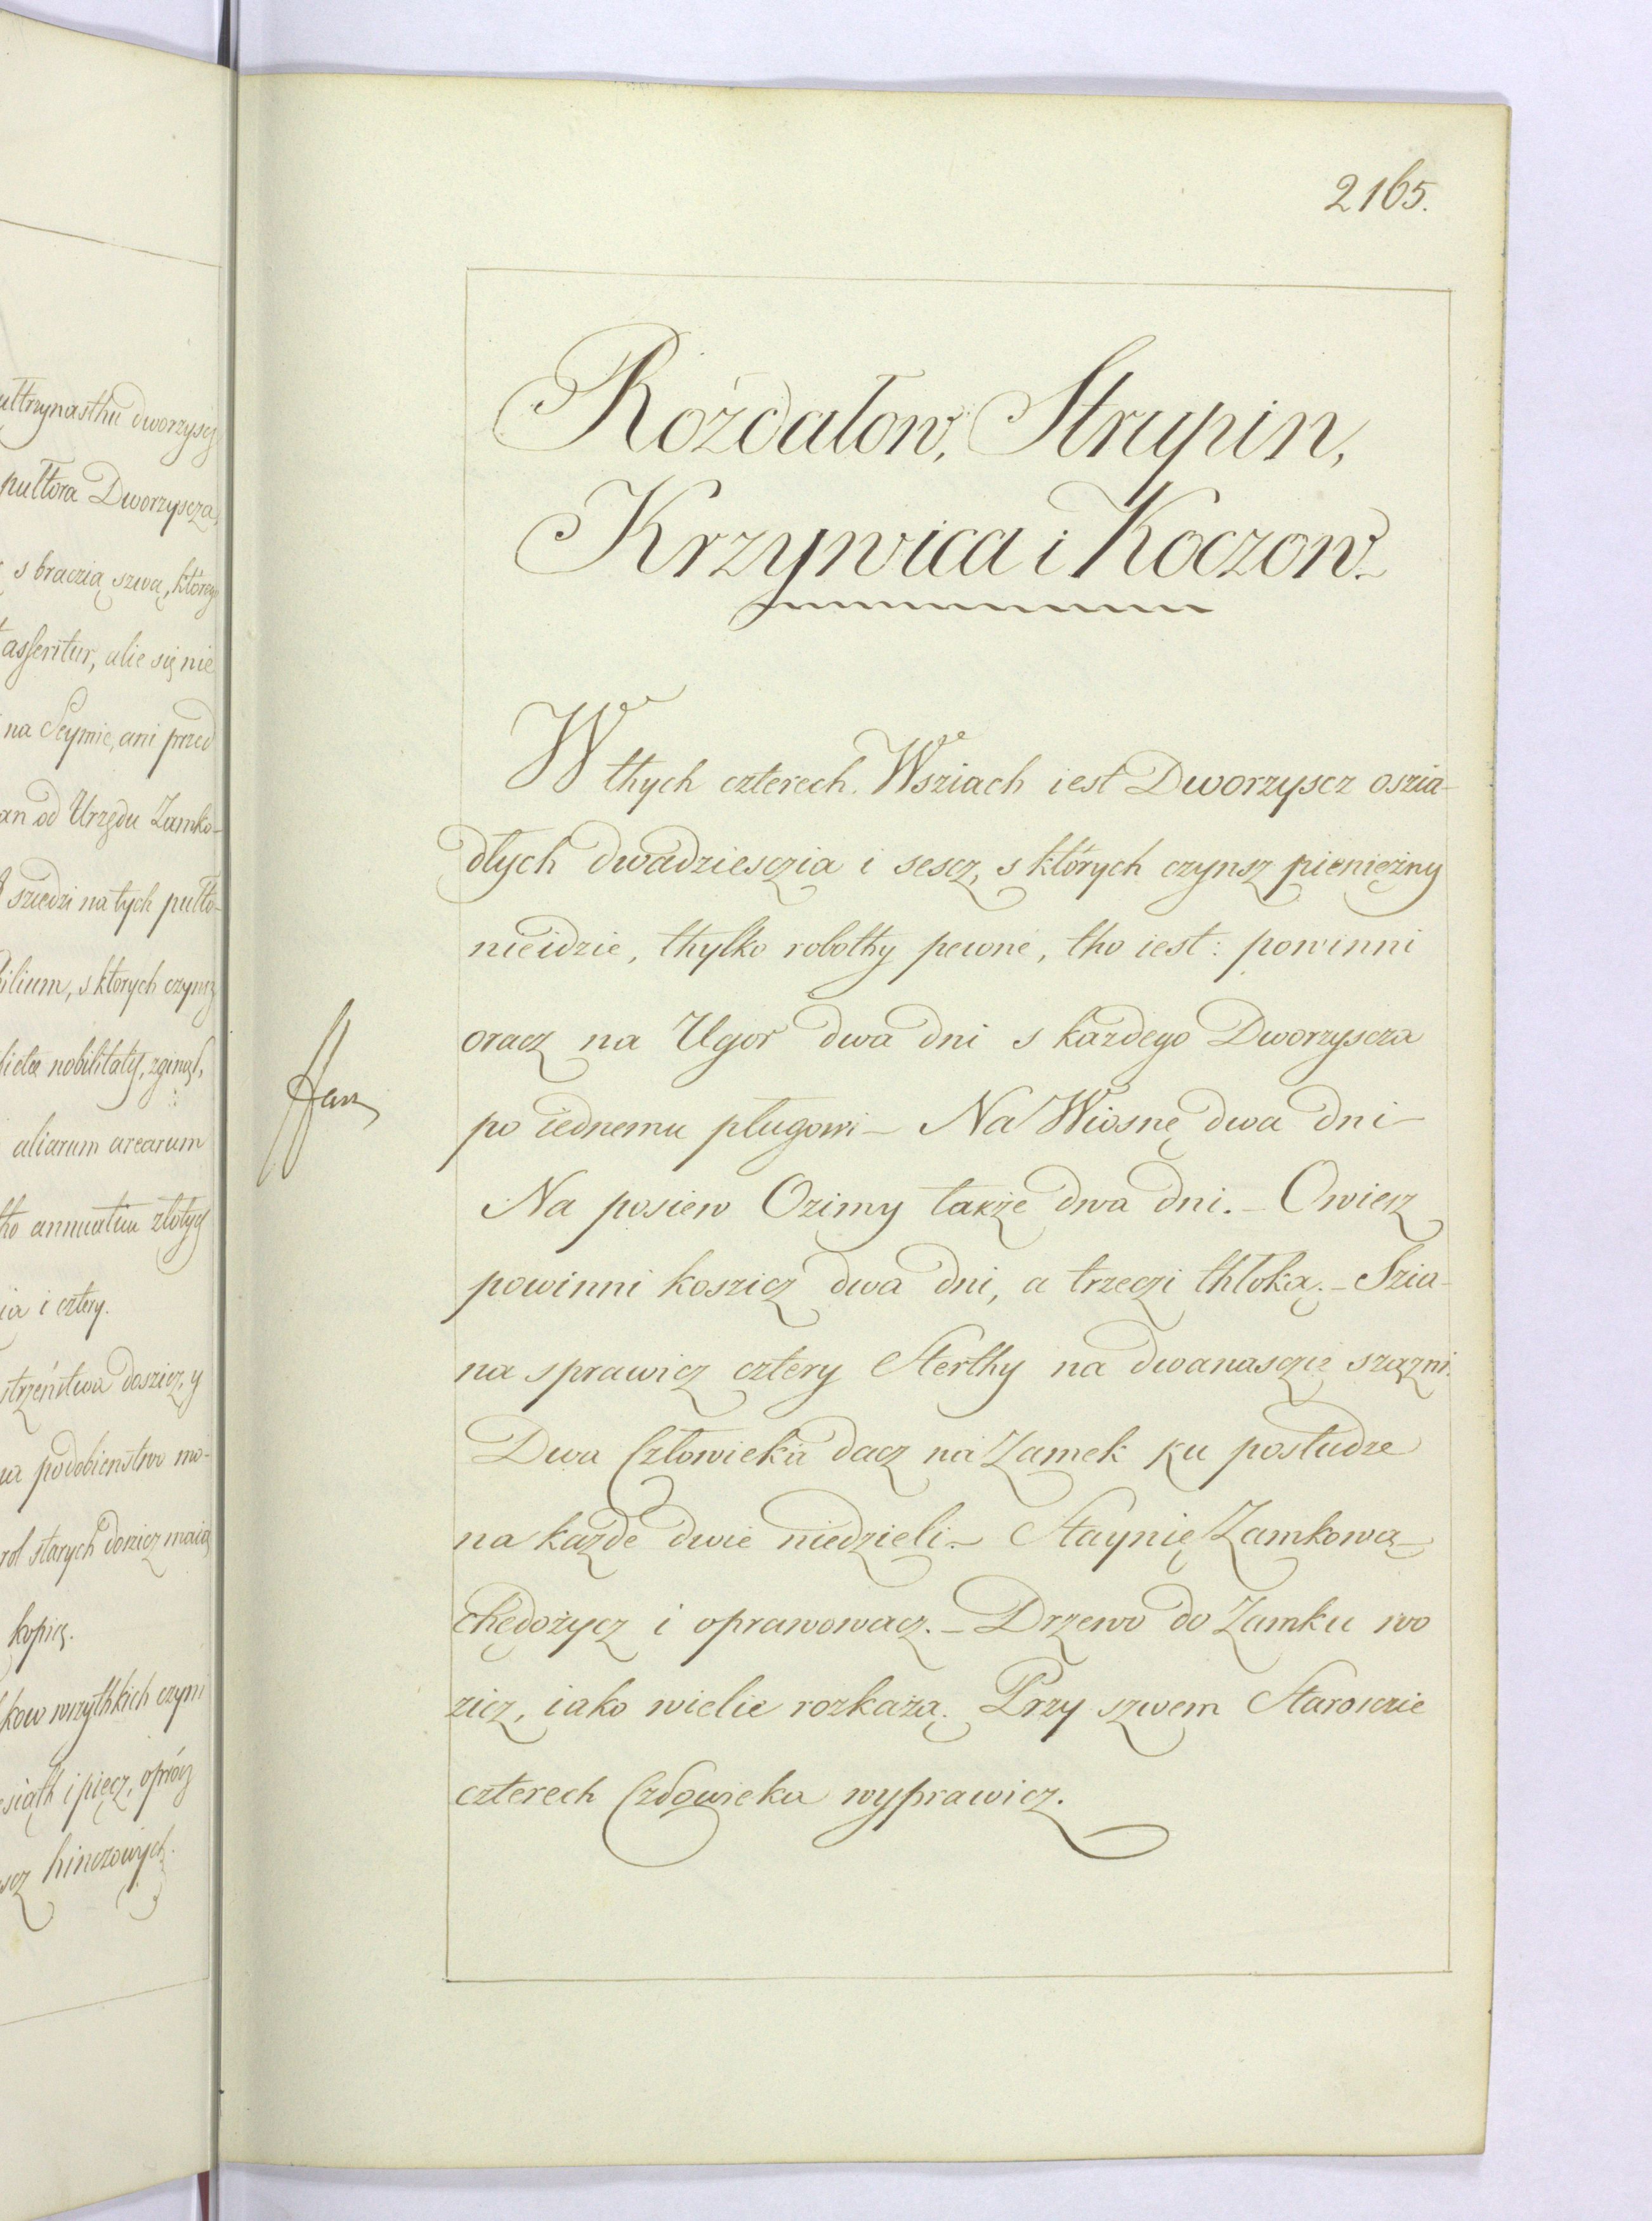 ułtrzynasthu dworzyscz
pułtora Dworzyscza,
s braczią szwą, którey
asseritur, alie się nie
na Seymie, ani przed
an od Urzędu Zamko-
sziedzi na tych pułto-
bilium, s których czynsz
nobilitatis, zginął,
aliarum arearum
annuatim złotych
ia i cztery.
doszicz, y
podobieństwo mo-
rol starych maią
kopią.
kow wszythkich czyni
i pięcz, oprócz
hinczowych.
2165.
Rożdałow, Strupin,
Krzywica i Koczow.
W thych czterech Wsziach iest Dworzyscz oszia-
dłych dwadziesczia i sescz, s których czynsz pieniężny
nieidzie, thylko robothy pewne, tho iest: powinni
oracz na Ugor dwa dni s każdego Dworzyscza
po iednemu pługowi – Na Wiosnę dwa dni –
Na posiew Ozimy także dwa dni. – Owiesz
powinni koszicz dwa dni, a trzeczi thłoką. – Szia-
na sprawicz cztery Sterthy na dwanasczie szązni.
Dwa Człowieka dacz na Zamek ku posłudze
na każde dwie niedzieli. – Staynię Zamkową –
chędożycz i oprawowacz. – Drzewo do Zamku wo
zicz, iako wielie rozkażą. Przy szwem Starosczie
czterech Człowieka wyprawicz.